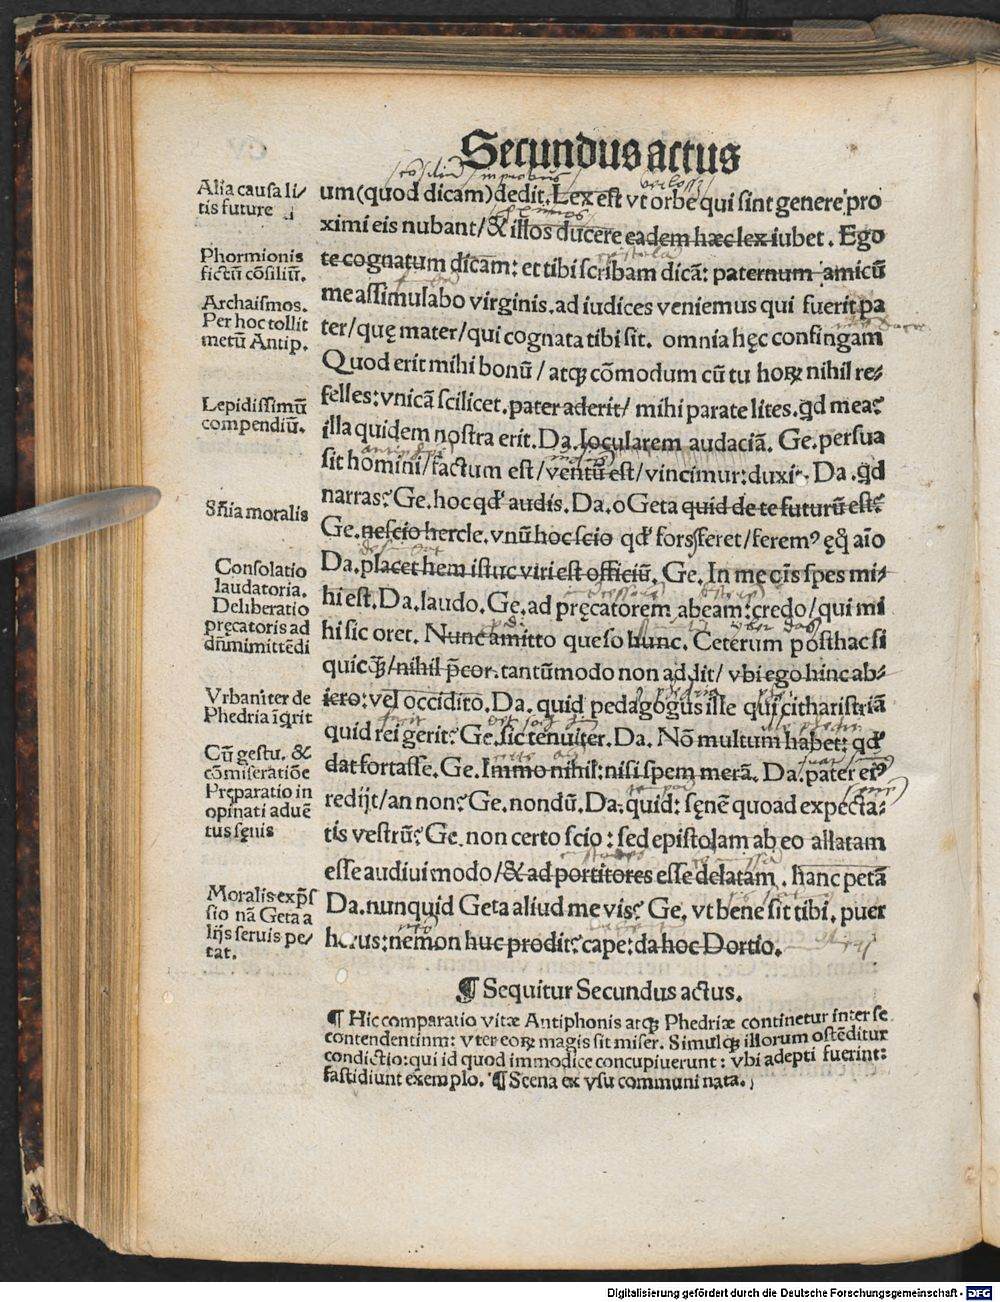 Secundus actus
Alia causa li/
tis future
Phormionis
fictū cōsiliū.
Archaismos.
Per hoc tollit
metū Antip.
Lepidissimū
compendiū.
Sñia moralis
Consolatio
laudatoria.
Deliberatio
pręcatoris ad
dñm imittēdi
Vrbaniter de
Phedria īq̄rit
Cū gestu. &
cōmiseratiōe
Preparatio in
opinati aduē
tus sęnis
Moralis exp̄s
sio nā Geta a
lijs seruis pe/
tat.
um (quod dicam) dedit. Lex est vt orbe qui sint genere pro
ximi eis nubant/& illos ducere eadem hæc lex iubet. Ego
te cognatum dicam: et tibi scribam dicā: paternum amicū
me assimulabo virginis. ad iudices veniemus qui fuerit pa
ter/quę mater/qui cognata tibi sit. omnia hęc confingam
Quod erit mihi bonū/atqꝫ cōmodum cū tu horꝝ nihil re⸗
felles: vnicā scilicet. pater aderit/ mihi parate lites. qd mea?
illa quidem nostra erit. Da. Iocularem audaciā. Ge. persua
sit homini/factum est/ventū est/vincimur: duxit. Da. qd
narras? Ge. hoc qđ audis. Da. o Geta quid de te futurū est?
Ge. nescio hercle. vnū hoc scio qđ fors feret/feremꝰ ęq̄ aīo
Da. placet hem istuc viri est officiū. Ge. In me oīs spes mi⸗
hi est. Da. laudo. Ge. ad pręcatorem abeam: credo/qui mi
hi sic oret. Nunc amitto queso hunc. Ceterum posthac si
quicq̄ꝫ/nihil p̄cor. tantūmodo non addit/ vbi ego hinc ab⸗
iero: vel occidito. Da. quid pedagogus ille qui citharistriā
quid rei gerit? Ge. sic tenuiter. Da. Nō multum habet: qđ
dat fortasse. Ge. Immo nihil: nisi spem merā. Da. pater eiꝰ
redijt/an non? Ge. nondū. Da. quid: sęnē quoad expecta⸗
tis vestrū? Ge. non certo scio: sed epistolam ab eo allatam
esse audiui modo/& ad portitores esse delatam. hanc petā
Da. nunquid Geta aliud me vis? Ge. vt bene sit tibi. puer
heus: nemon huc prodit? cape: da hoc Dortio.
¶ Sequitur Secundus actus.
¶ Hic comparatio vitæ Antiphonis atqꝫ Phedriæ continetur inter se
contendentium: vter eorꝝ magis sit miser. Simulqꝫ illorum ostēditur
condictio: qui id quod immodice concupiuerunt: vbi adepti fuerint:
fastidiunt exemplo. ¶ Scena ex vsu communi nata.
Digitalisierung gefördert durch die Deutsche Forschungsgemeinschaft - DFG